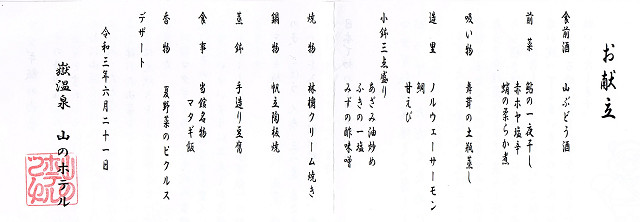 お献立
食前酒 山ぶどう酒
前菜 鮎の一夜干し
赤ホヤ塩辛
蛸の柔らか煮
吸い物 舞茸の土瓶蒸し
造里 ノルウェーサーモン
鯛
甘えび
小鉢三点盛り
あざみ油炒め
ふきの一塩
みずの酢味噌
焼物 林檎クリーム焼き
鍋物 帆立陶板焼
蒸鉢 手造り豆腐
食事 当館名物
マタギ飯
香物 夏野菜のピクルス
デザート
令和三年六月二十一日
嶽温泉 山のホテル